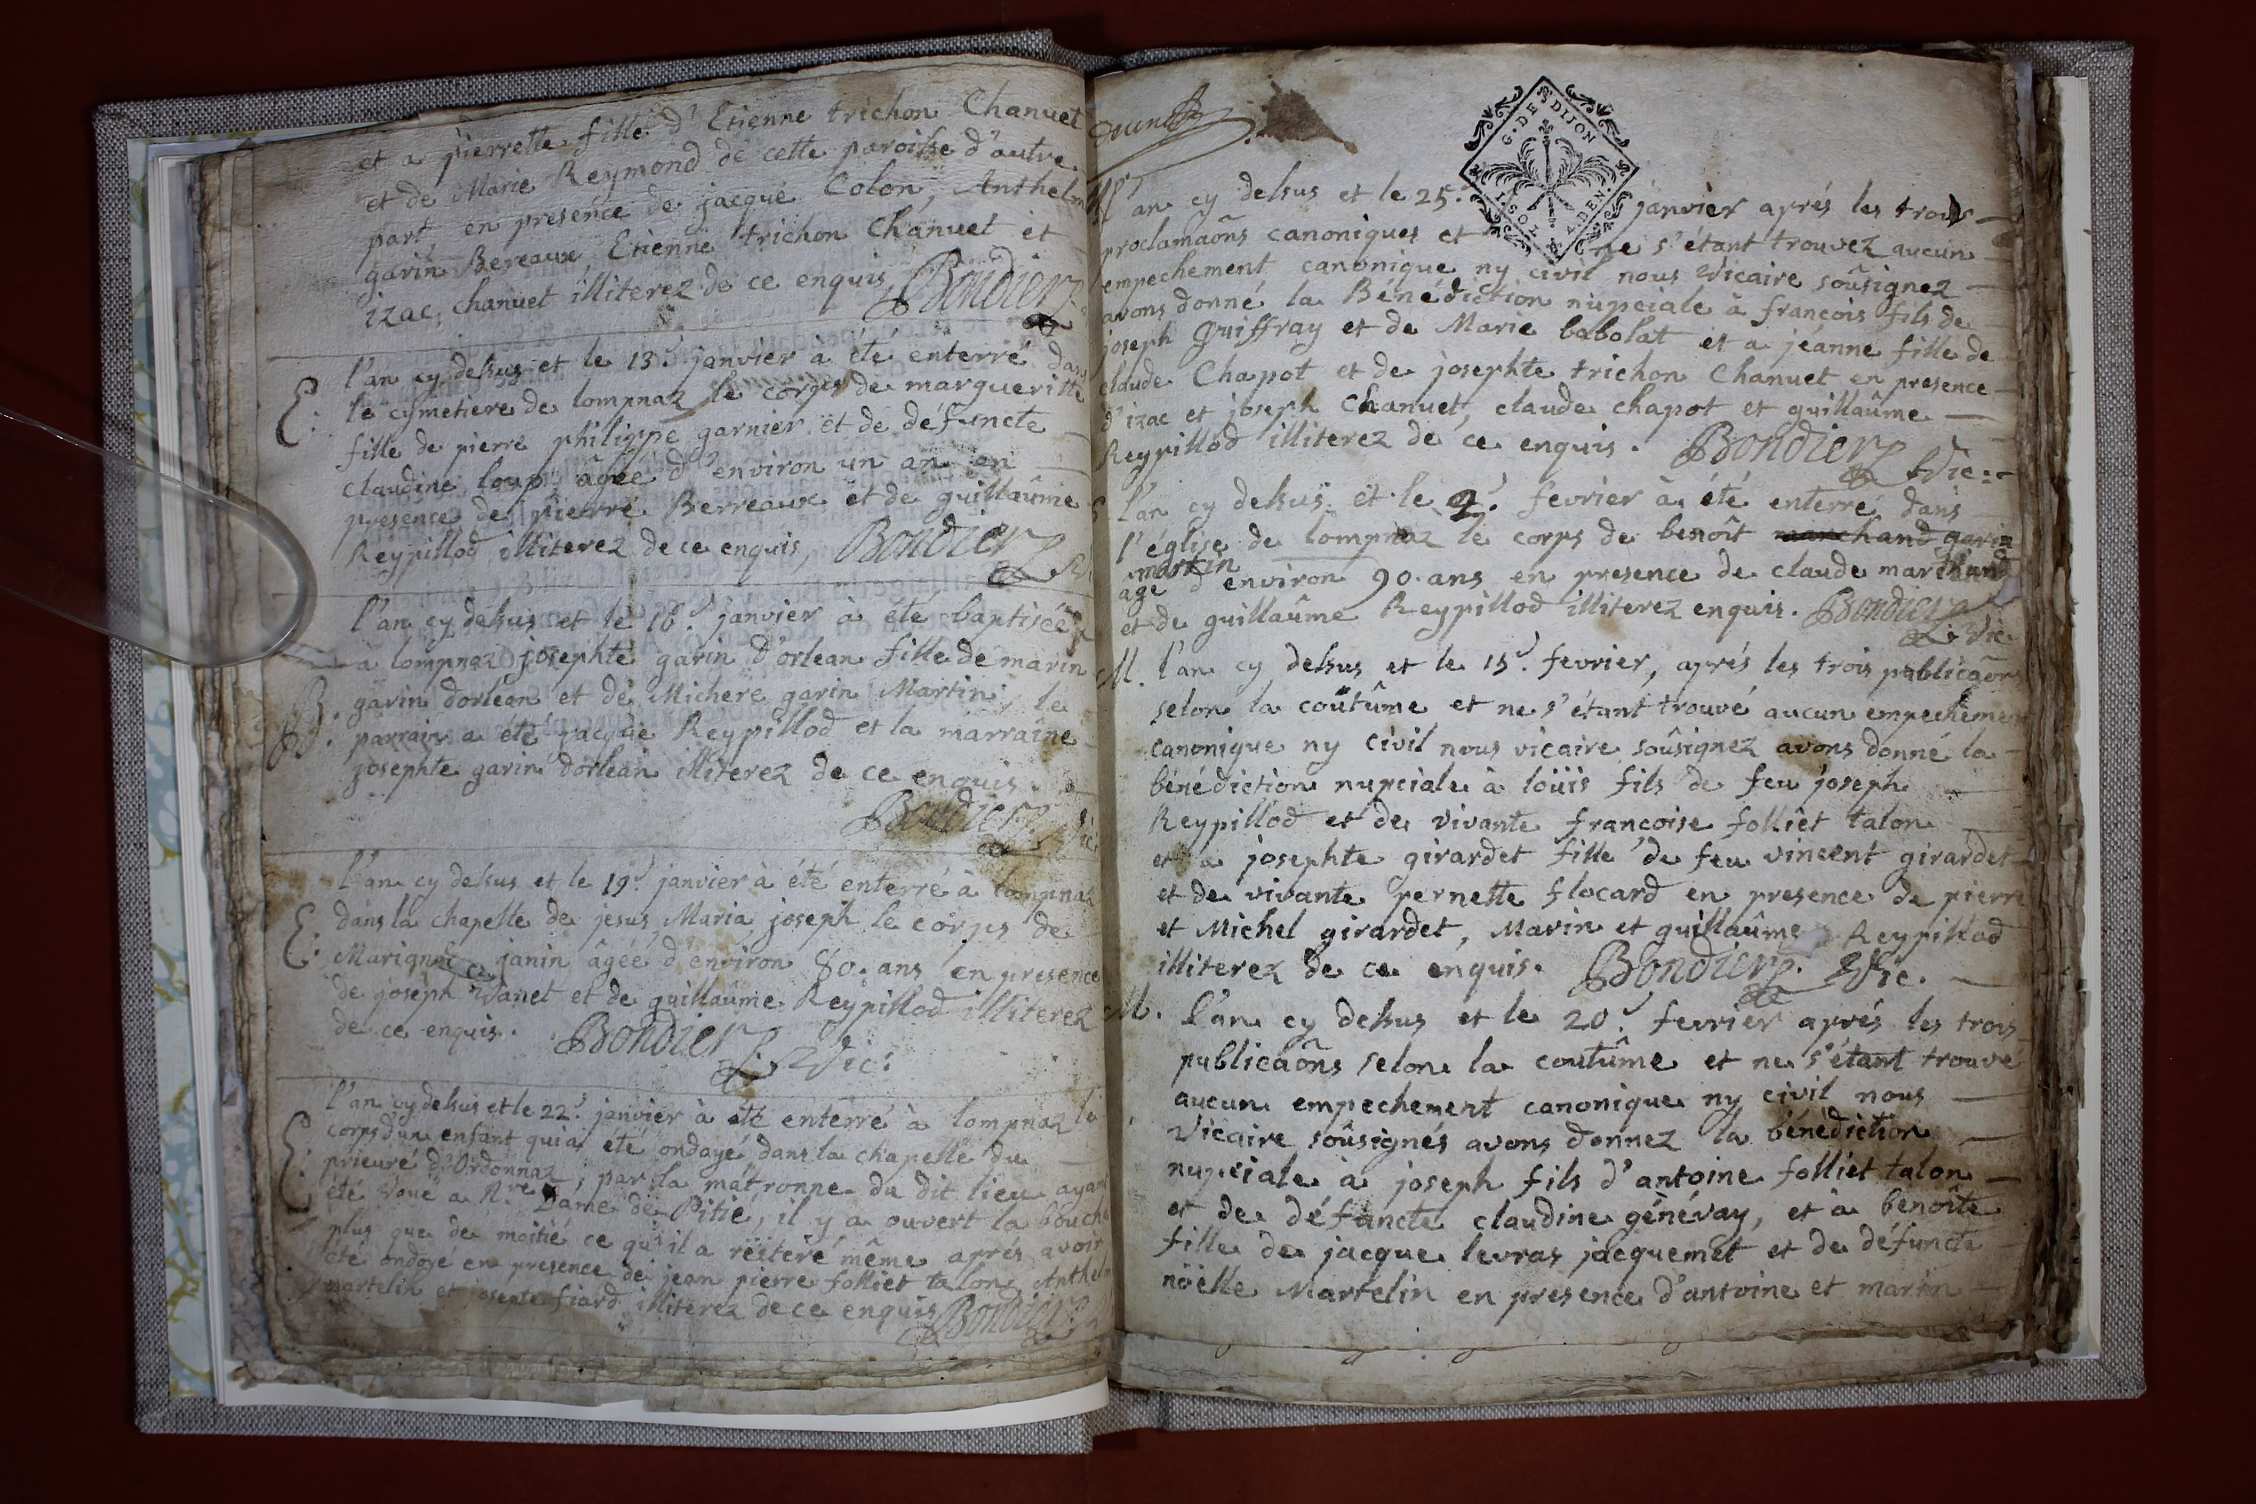 et a pierrette fille d'Etienne trichon Chanuet
et de Marie Reymond de cette paroisse d'autre
part en presence de jacque Colon, Anthelm
garin Bereaux Etienne trichon Chanuet et
izac chanuet illiterez de ce enquis Bondier
l'an cy dessus et le 13e. janvier a été enterré dans
E: le cymetiere de lompnaz le corps de margueritte
fille de pierre philippe garnier et de défuncte
claudine loup âgée d'environ un an en
presence de pierre Berreaux et de guillaûme
Reypillod illiterez de ce enquis, Bondier
l'an cy dessus et le 16e. janvier à été baptisée
a lompnaz josephte garin d'orlean fille de marin
B. garin dorlean et de Michere garin Martin le
parrain a été jacque Reypillod et la marraîne
josephte garin dorlean illiterez de ce enquis.
Bondier Vic
l'an cy dessus et le 19e. janvier à été enterré à lompnaz
E: dans la chapelle de jesus Maria joseph le corps de
janin âgéé d'environ 80. ans en presence
de joseph Vanet et de guillaûme Reypillod illiterez
de ce enquis. Bondier Vic:
l'an cy dessus et le 22e. janvier à été enterré à lompnaz le
E: corps d'un enfant qui a été ondoyé dans la chapelle du
prieuré d'Ordonnaz, par la matronne du dit lieu ayant
été Voué a N.re Dame de Pitié, il y a ouvert la bouche
plus que de moitié ce qu'il a réiteré même aprés avoir
été ondoyé en presence de jean pierre folliet talon Anthelm
martelin et josepte fiard illiterez de ce enquis Bondier
M l'an cy dessus et le 25e. janvier aprés les trois
G. DE DIJON
proclamaôns canoniques et ne s'étant trouvez aucun
empechement canonique ny civil nous Vicaire soûsignez
avons donné la Bénédiction nupciale à francois fils de
joseph Guiffray et de Marie babolat et a jéanne fille de
claude Chapot et de josephte trichon Chanuet en presence
d'izac et joseph Chanuet, claude chapot et guillaûme
Reypillod illiterez de ce enquis. Bondier Vic:
l'an cy dessus et le 2e. fevrier à été enterré dans
l'église de lompnaz le corps de benoît marchand garin
martin
age d'environ 90. ans en presence de claude marchand
et de guillaûme Reypillod illiterez enquis. Bondier Vic
M. l'an cy dessus et le 15e. fevrier, aprés les trois publicaôns
selon la coûtûme et ne s'étant trouvé aucun empechemen
canonique ny civil nous vicaire soûsignez avons donné la
bénédiction nupciale à loüis fils de feu joseph
Reypillod et de vivante francoise folliet talon
et a josephte girardet fille de feu vincent girardet
et de vivante pernette flocard en presence de pierre
et Michel girardet, Marin et guillaûme Reypillod
illiterez de ce enquis. Bondier Vic.
M. l'an cy dessus et le 20e. fevrier aprés les trois
publicaôns selon la coutûme et ne s'étant trouvé
aucun empechement canonique ny civil nous
Vicaire soûsignés avons donnez la bénédiction
nupciale à joseph fils d'antoine folliet talon
et de défuncte claudine génévay, et à benoîte
fille de jacque levras jacquemet et de défuncte
nöelle Martelin en presence d'antoine et marin